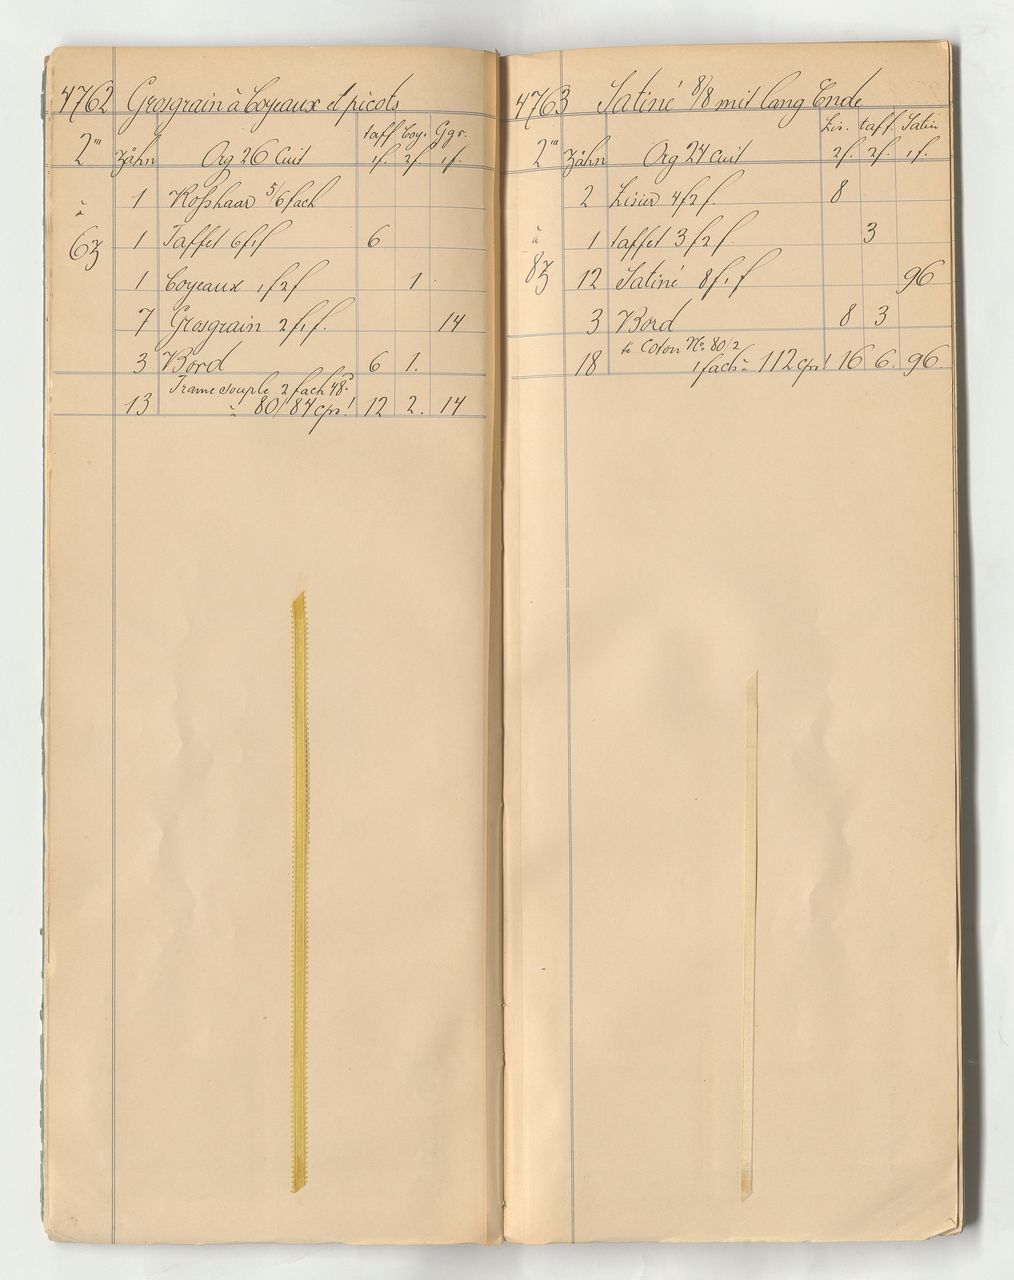 4762 Grosgrain à boyeaux et picots
taff boy. Ggr.
2''' Zähn Org 26 Cuit 1f. 2f. 1f.
1 Rosshaar 5/6 fach
à
6z 1 Taffet 6f1f 6
1 boyeaux 1f2f 1.
7 Grosgrain 2f1f. 14
3 Bord 6 1.
Trame souple 2 fach 48
13 à 80/84 cps! 12 2. 14
4763 Satiné 8/8 mit lang Ende
Lis. taff. Satin
2''' Zähn Org 24 Cuit 2f. 2f. 1f.
2 Lisier 4f2f. 8
à 1 taffet 3f2f 3
8z 12 Satiné 8f1f 96
3 Bord 8 3
te Coton No. 80/2
18 1fach à 112 cps! 16 6. 96.